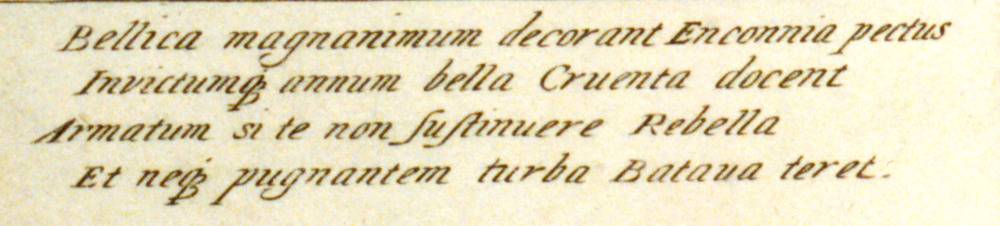 Bellica magnanimum decorant Enconnia pectus
Invictumq́ꝫ annum bella Cruenta docent
Armatum si te non ſuſtinuere Rebella
Et neq́ꝫ pugnantem turba Bataua teret.